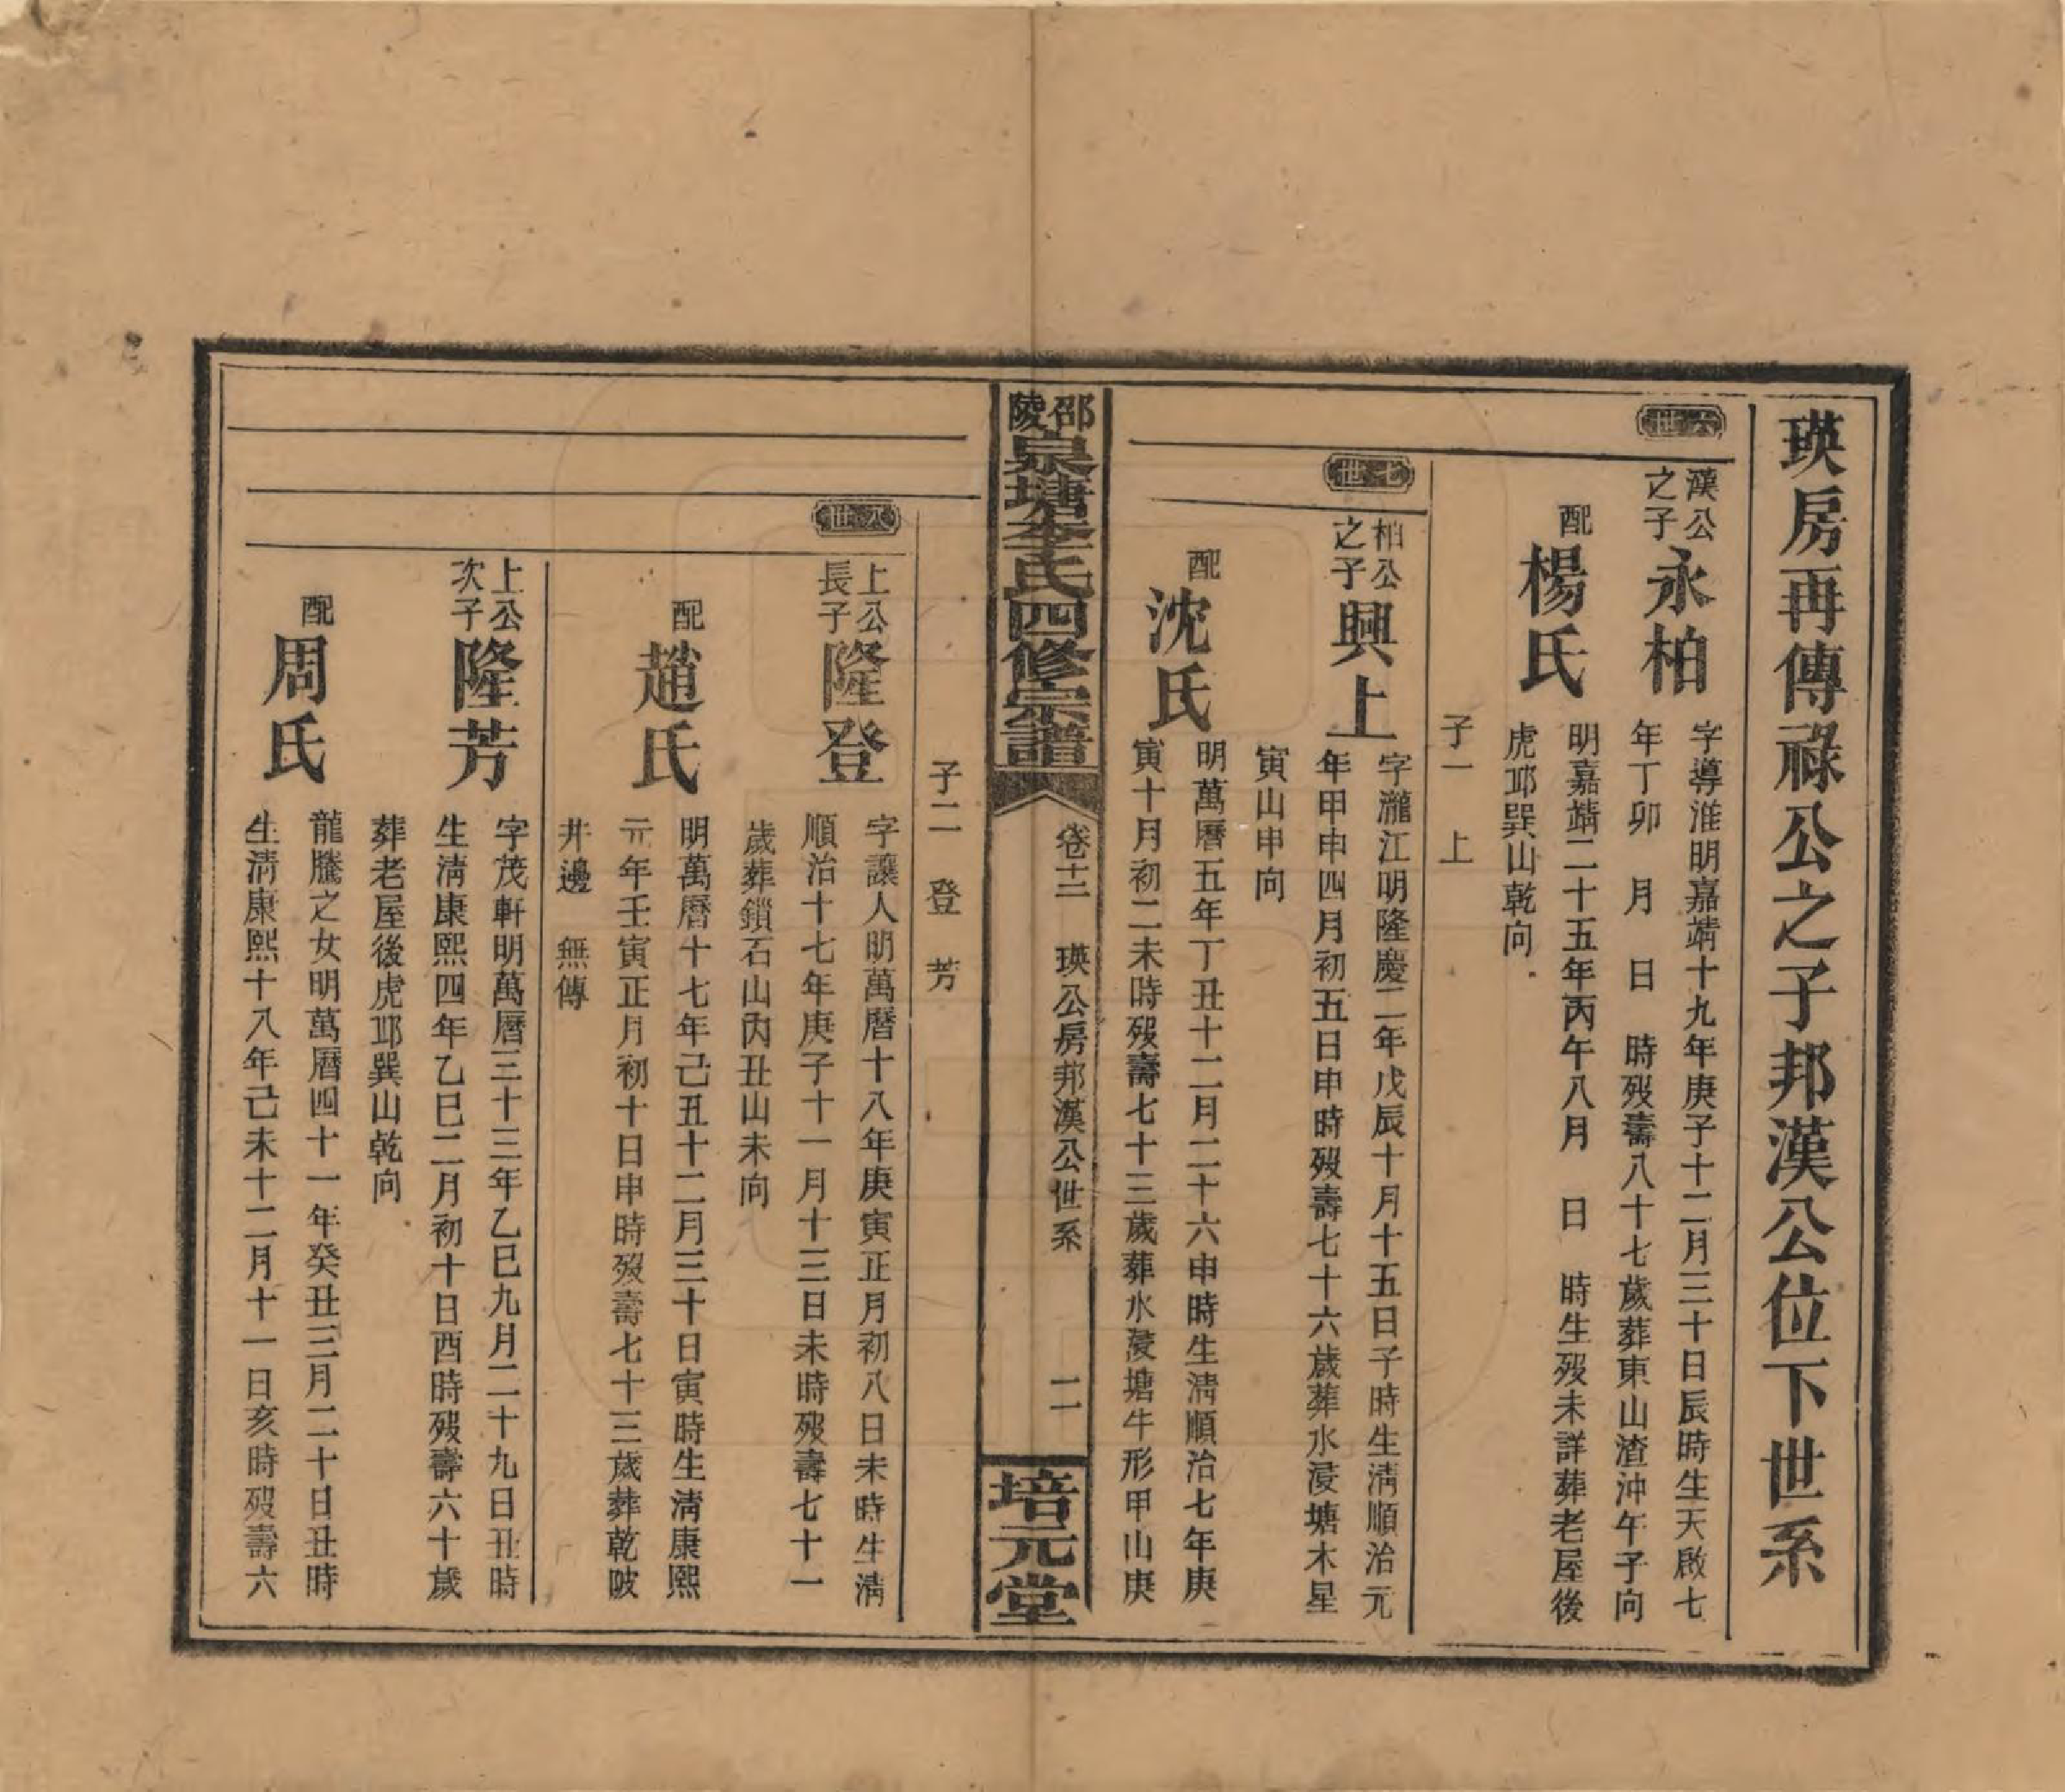 瑛房再傳祿公之子邦漢公位下世系
六世
漢公之子
永柏
字導淮明嘉靖十九年庚子十二月三十日辰時生天啟七
年丁卯 月 日 時歿壽八十七歲葬東山渣沖午子向
配
楊氏
明嘉靖二十五年丙午八月 日 時生歿未詳葬老屋後
虎邱巽山乾向
子一 上
七世
柏公之子
興上
字瀧江明隆慶二年戊辰十月十五日子時生淸順治元
年甲申四月初五日申時歿壽七十六歲葬水浸塘木星
寅山申向
配
沈氏
明萬曆五年丁丑十二月二十六申時生淸順治七年庚
寅十月初二未時歿壽七十三歲葬水浸塘牛形甲山庚
邵陵
泉塘李氏四修宗譜
卷十二 瑛公房邦漢公世系 二
培元堂
子二 登 芳
八世
上公長子
隆登
字讓人明萬曆十八年庚寅正月初八日未時生淸
順治十七年庚子十一月十三日未時歿壽七十一
歲葬鎖石山內丑山未向
配
趙氏
明萬曆十七年己丑十二月三十日寅時生淸康熙
元年壬寅正月初十日申時歿壽七十三歲葬乾陂
井邊 無傳
上公次子
隆芳
字茂軒明萬曆三十三年乙巳九月二十九日丑時
生淸康熙四年乙巳二月初十日酉時歿壽六十歲
葬老屋後虎邱巽山乾向
配
周氏
龍騰之女明萬曆四十一年癸丑三月二十日丑時
生淸康熙十八年己未十二月十一日亥時歿壽六